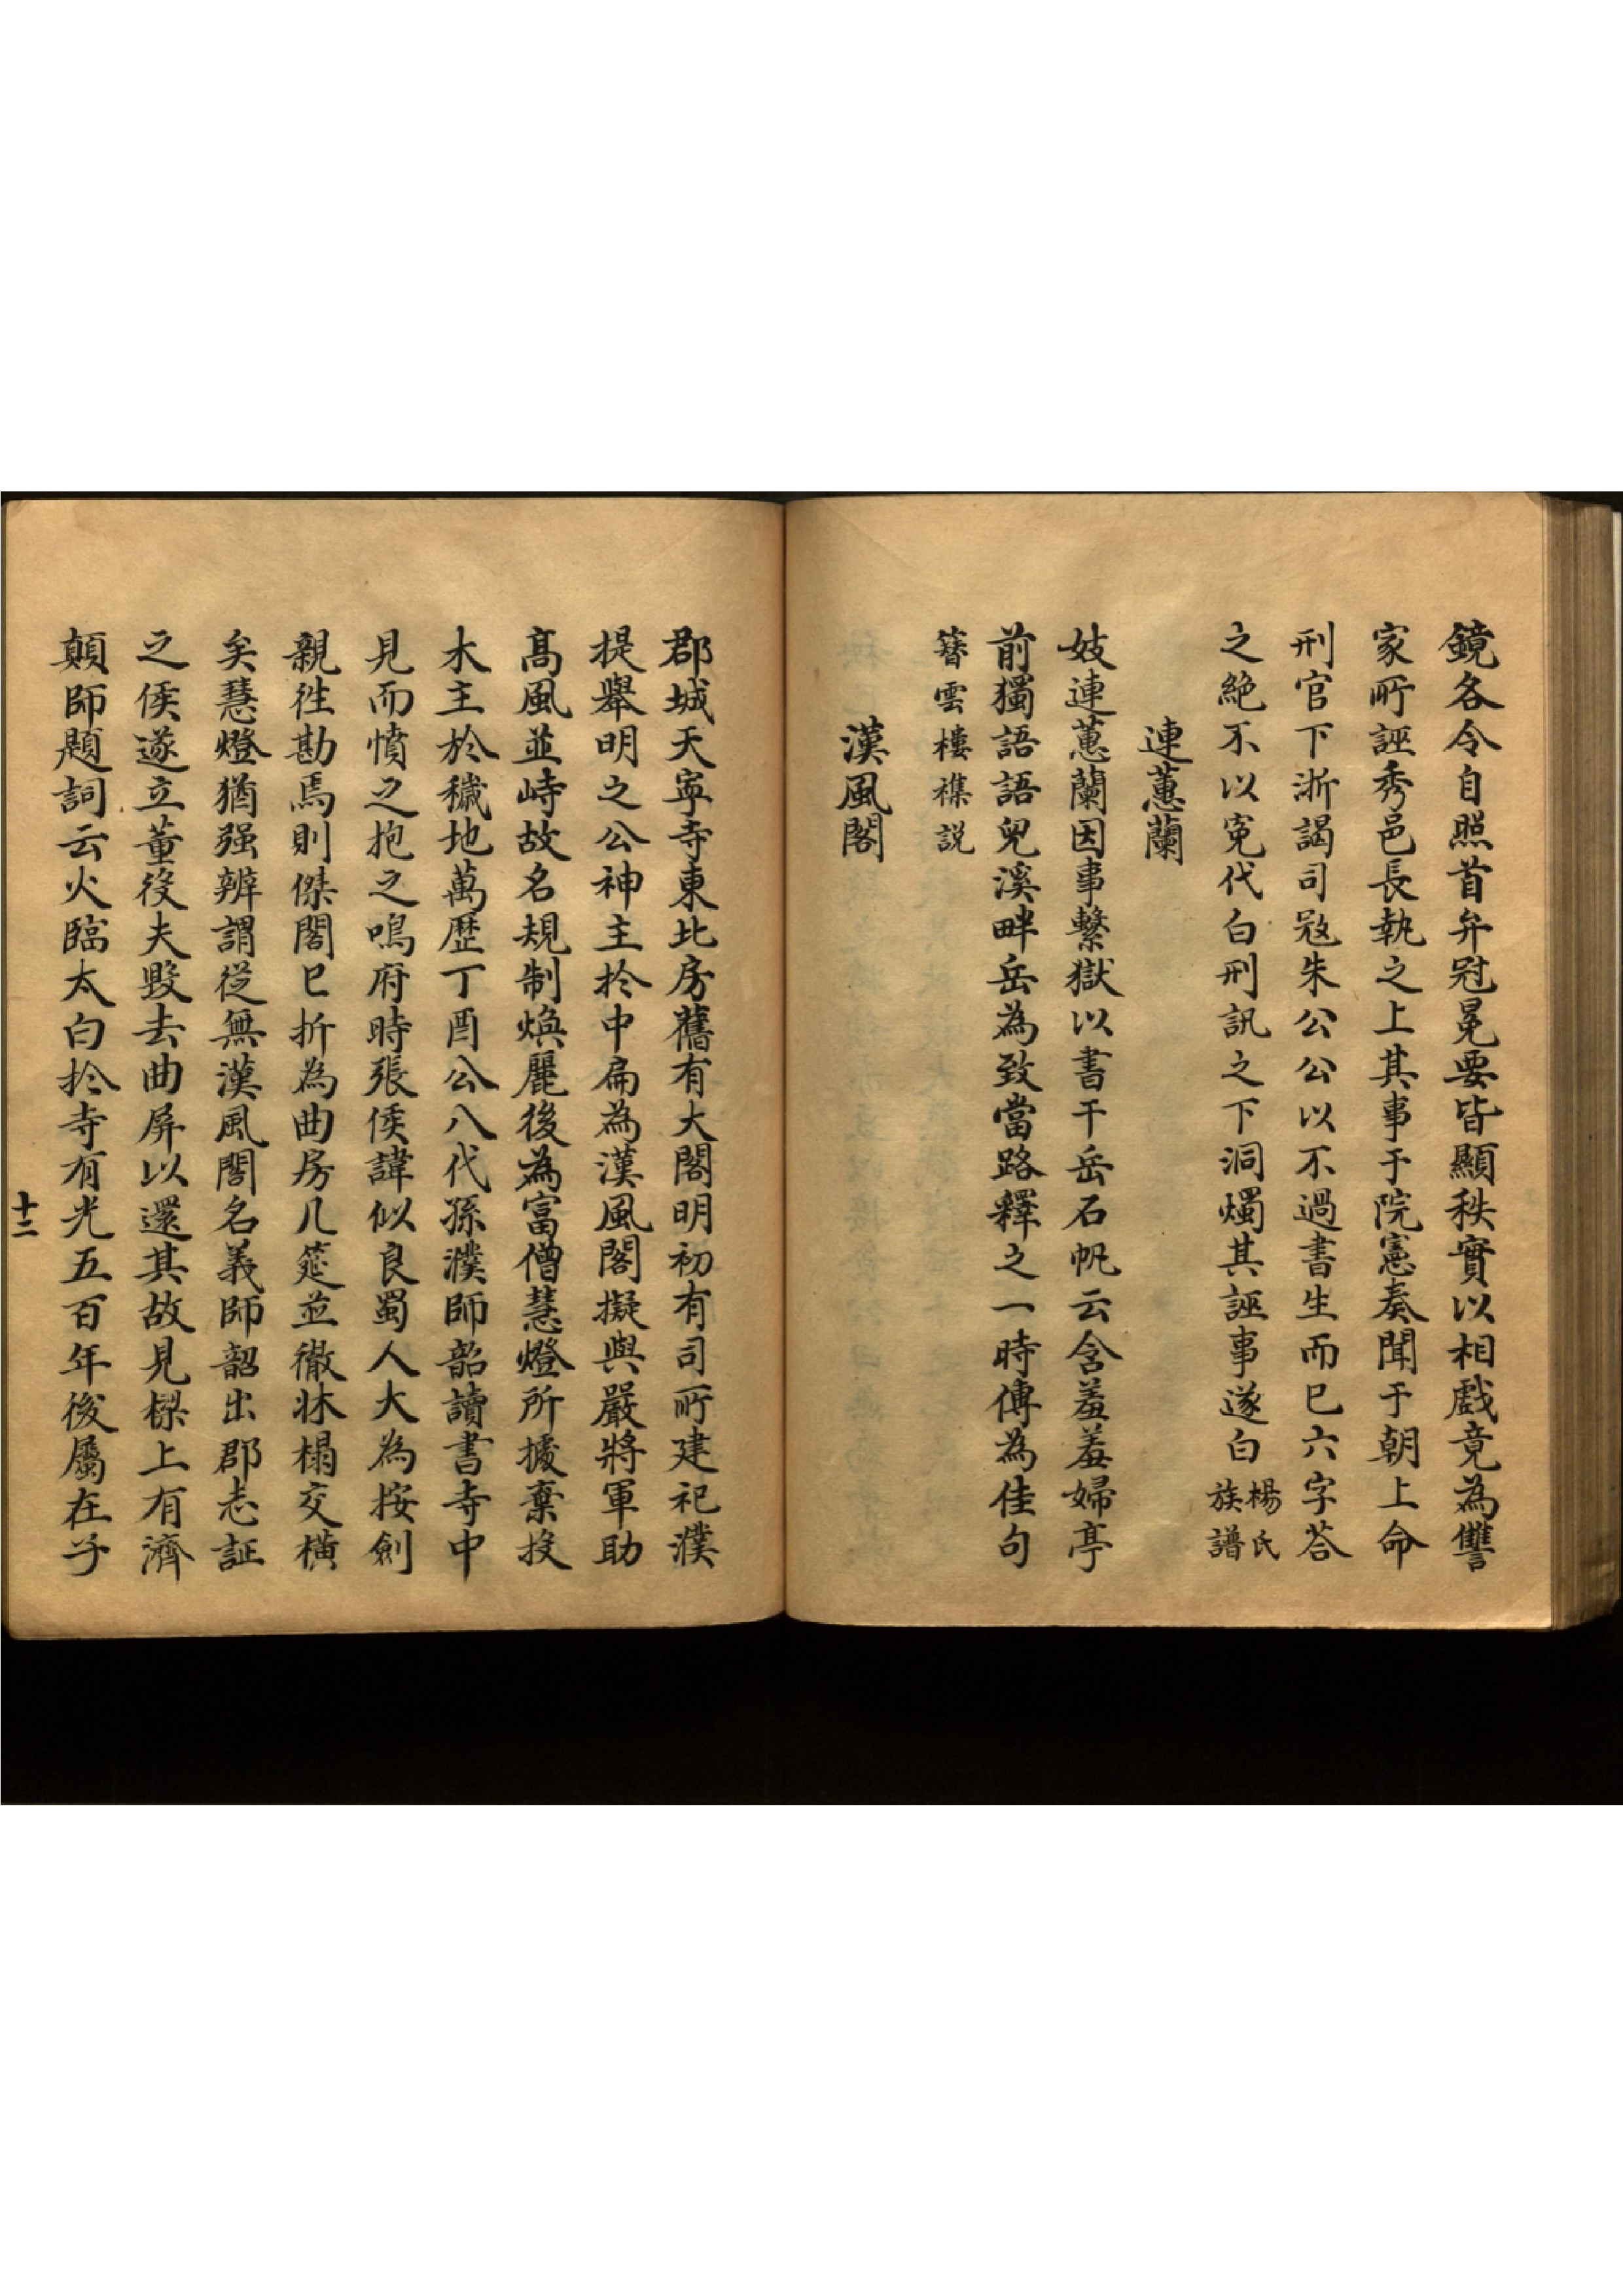 鏡各令自照首弁冠冕要皆顯秩實以相戲竟為讐
家所誣秀邑長執之上其事于院憲奏聞于朝上命
刑官下浙謁司寇朱公公以不過書生而已六字荅
之絶不以寃代白刑訊之下洞燭其誣事遂白楊氏族譜
連蕙蘭
妓連蕙蘭因事繫獄以書干岳石帆云含羞羞婦亭
前獨語語兒溪畔岳為致當路釋之一時傳為佳句
簪雲樓襍説
漢風閣
郡城天寧寺東北房舊有大閣明初有司所建祀濮
提舉明之公神主於中扁為漢風閣擬與嚴將軍助
髙風並峙故名規制煥麗後為富僧慧燈所據棄投
木主於穢地萬歷丁酉公八代孫濮師韶讀書寺中
見而憤之抱之鳴府時張侯諱似良蜀人大為按劍
親徃勘焉則傑閣已折為曲房几筵並徹牀榻交橫
矣慧燈猶强辨謂從無漢風閣名義師韶出郡志証
之侯遂立董役夫毀去曲屏以還其故見樑上有濟
顛師題詞云火臨太白於寺有光五百年後屬在子
十二